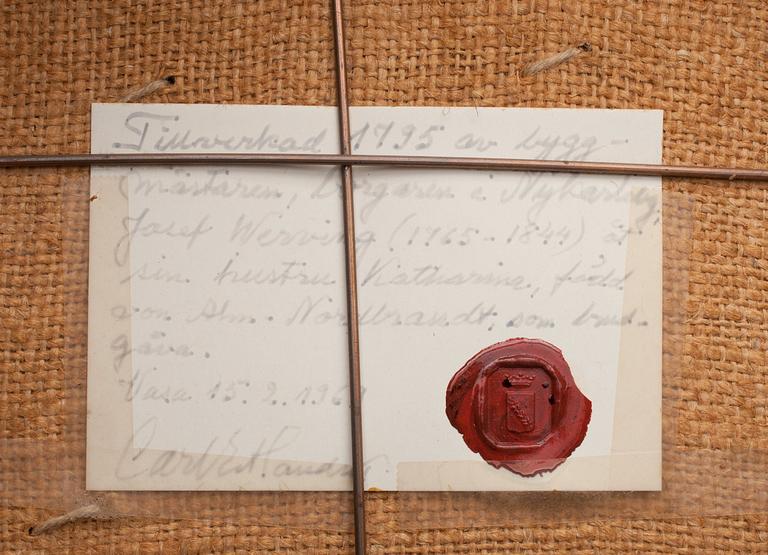 Tillverkad 1795 av bygg-
mästaren, borgaren i Nykarleby,
Josef Werving (1765-1844) åt
sin hustru Katharina, född
von Alm. Nordbrandt, som brud-
gåva.
Vasa 15.2.196
Carl E